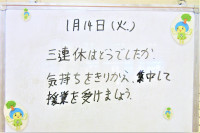 1月14日(火)
三連休はどうでしたか。
気持ちをきりかえ、集中して
授業を受けましょう。